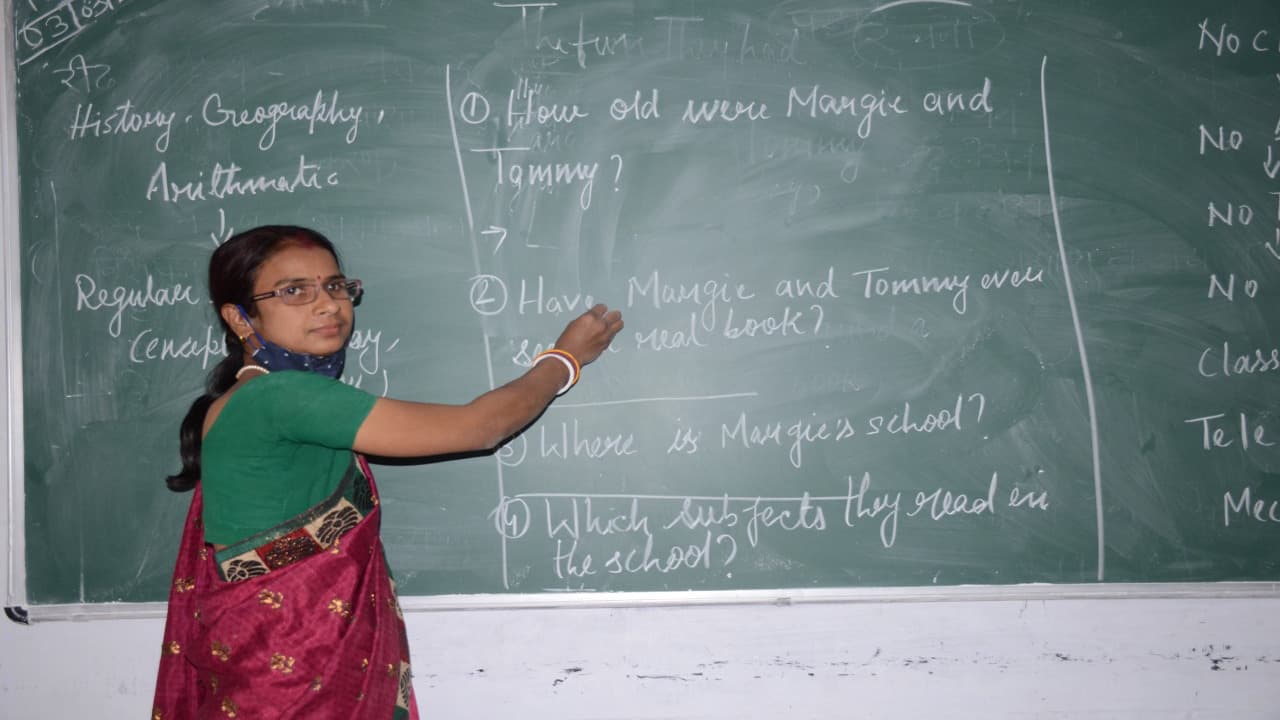 The fun They had
History, Geography,
Arithmatic
↓
Regular
Concep
① How old were Margie and
Tommy?
→
② Have Margie and Tommy ever
real book?
3) Where is Margie's school?
④ Which subjects they read in
the school?
No c
No
No
No
Class
Tele
Mec